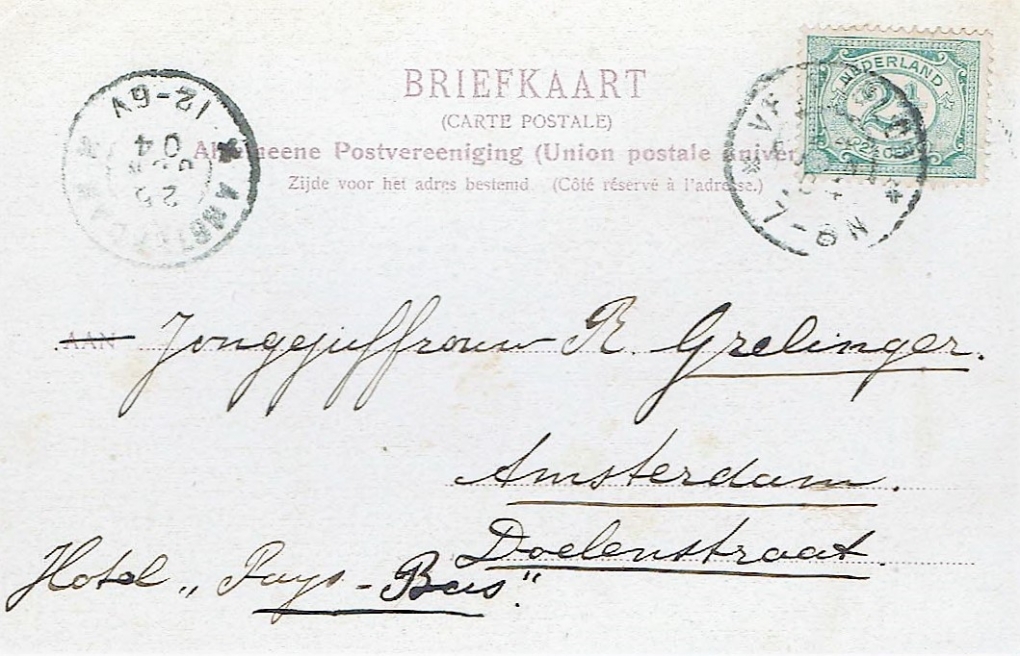 BRIEFKAART
(CARTE POSTALE)
Algemeene Postvereeniging (Union postale univer
Zijde voor het adres bestemd (Côté réservé à l'adresse.)
NEDERLAND
2½
AMSTERDAM
25
04
12-6V
AAN Jongejuffrouw R. Grelinger.
Amsterdam.
Doelenstraat.
Hotel „Pays-Bas".